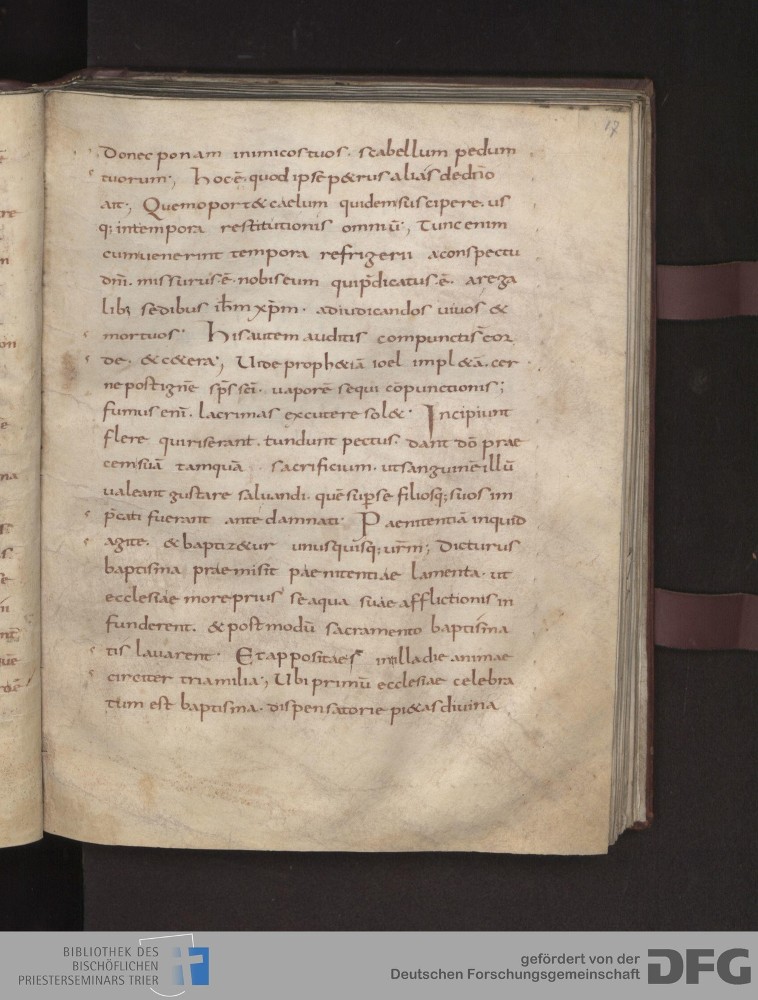 17
Donec ponam inimicostuos. scabellum pedum
tuorum; hocē. quod ipse p&rus aliás dedn̄o
ait; Quem oport& caelum quidem suscipere. us
q; intempora restitutionis omniū; Tunc enim
cum uenerint tempora refrigerii aconspectu
dn̄i. missurus. ē. nobis eum qui p̄dicatus. ē. arega
lib; sedibus ih̄m xp̄m. adiudicandos uiuos &
mortuos. His autem auditis compunctis̄ cor
de. & c&era; Uide proph&iā ioel impl&ā. cer
ne post ignē sp̄s sc̄i. uaporē sequi cōpunctionis;
fumus enī. lacrimas excutere sol&. Incipiunt
flere qui riserant. tundunt pectus. dant dō prae
cem suā tamquā sacrificium. ut sanguinē illū
ualeant gustare saluandi. quē sup se filiosq; suos im
p̄cati fuerant ante damnati. Paenitentiā inquid
agite. & baptiz&ur unusquisq; ur̄m; Dicturus
baptisma praemisit paenitentiae lamenta. ut
ecclesiae more prius se aqua suae afflictionis in
funderent. & postmodū sacramento baptisma
tis lauarent. Et appositae s̄ in illa die animae
circiter tria milia; Ubi primū ecclesiae celebra
tum est baptisma. dispensatorie pi&as diuina
BIBLIOTHEK DES
BISCHÖFLICHEN
PRIESTERSEMINARS TRIER
gefördert von der
Deutschen Forschungsgemeinschaft
DFG